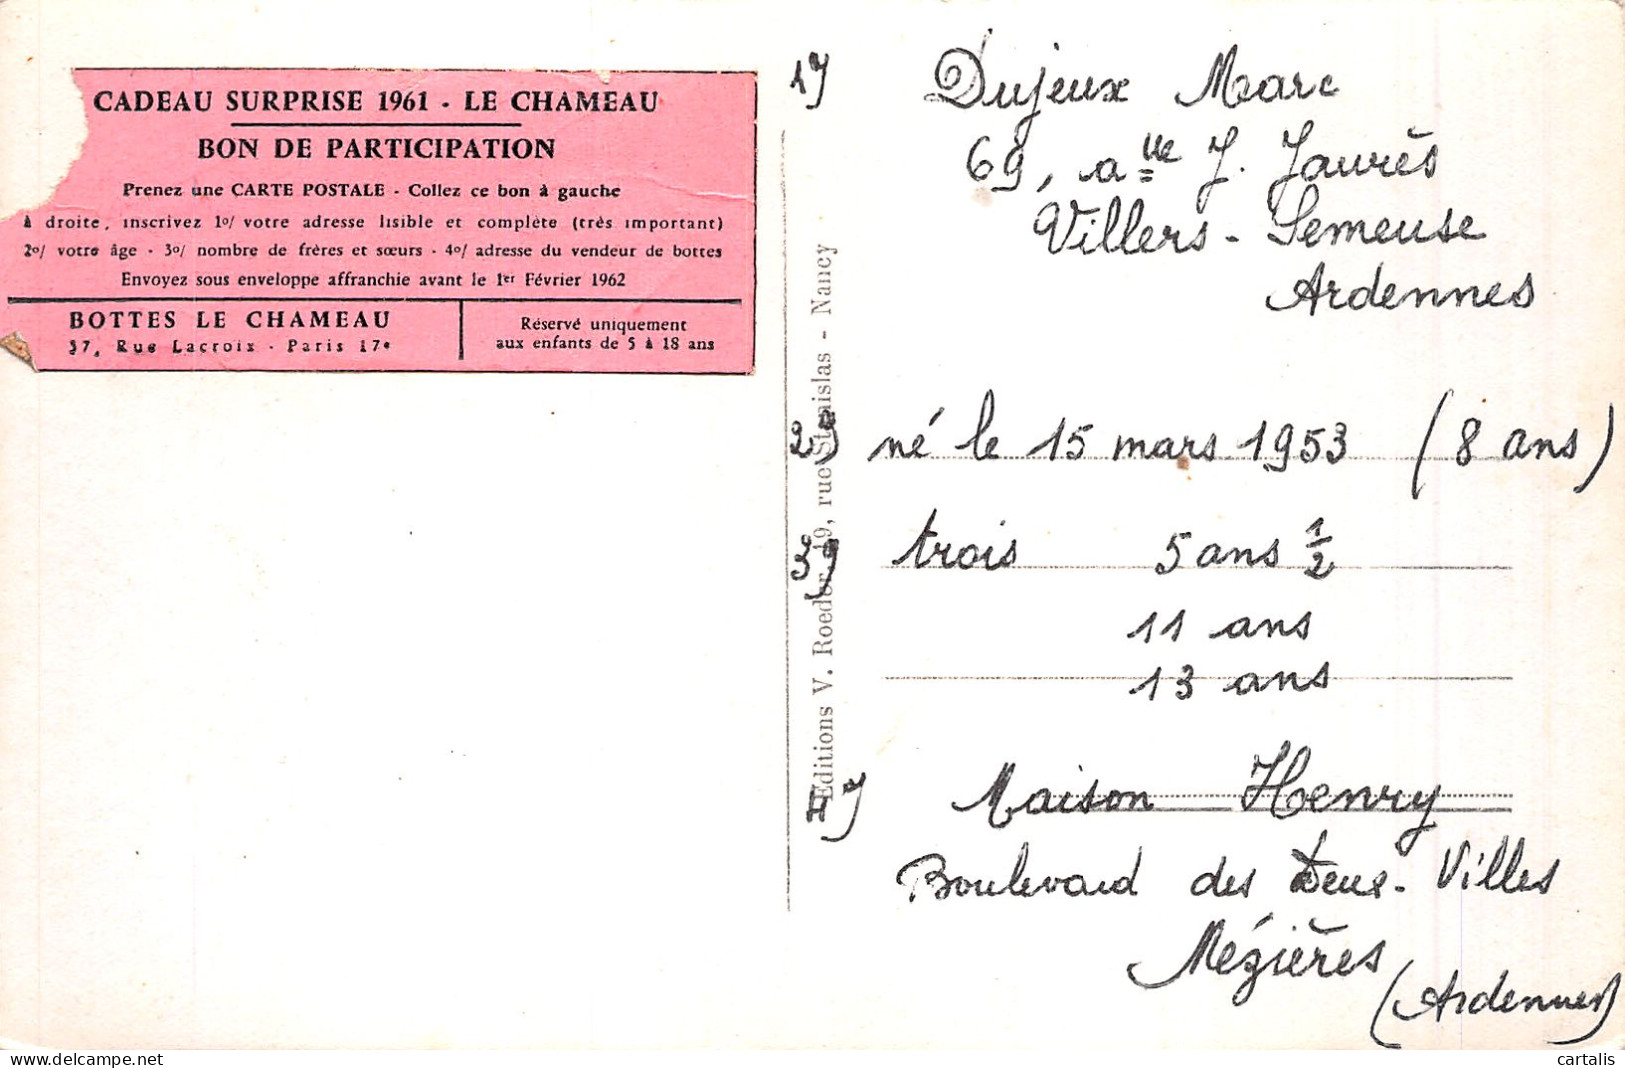 CADEAU SURPRISE 1961 - LE CHAMEAU
BON DE PARTICIPATION
Prenez une CARTE POSTALE - Collez ce bon à gauche
à droite, inscrivez 1o/ votre adresse lisible et complète (très important)
2o/ votre âge - 3o/ nombre de frères et sœurs - 4o/ adresse du vendeur de bottes
Envoyez sous enveloppe affranchie avant le 1er Février 1962
BOTTES LE CHAMEAU
37, Rue Lacroix - Paris 17e
Réservé uniquement
aux enfants de 5 à 18 ans
Editions V. Roeder, 19, rue Stanislas - Nancy
1) Dujeux Marc
69, aVue J. Jaurès
Villers-Semeuse
Ardennes
2) né le 15 mars 1953 (8 ans)
3) trois 5 ans 1/2
11 ans
13 ans
4) Maison Henry
Boulevard des Deux-Villes
Mézières
(Ardennes)
cartalis